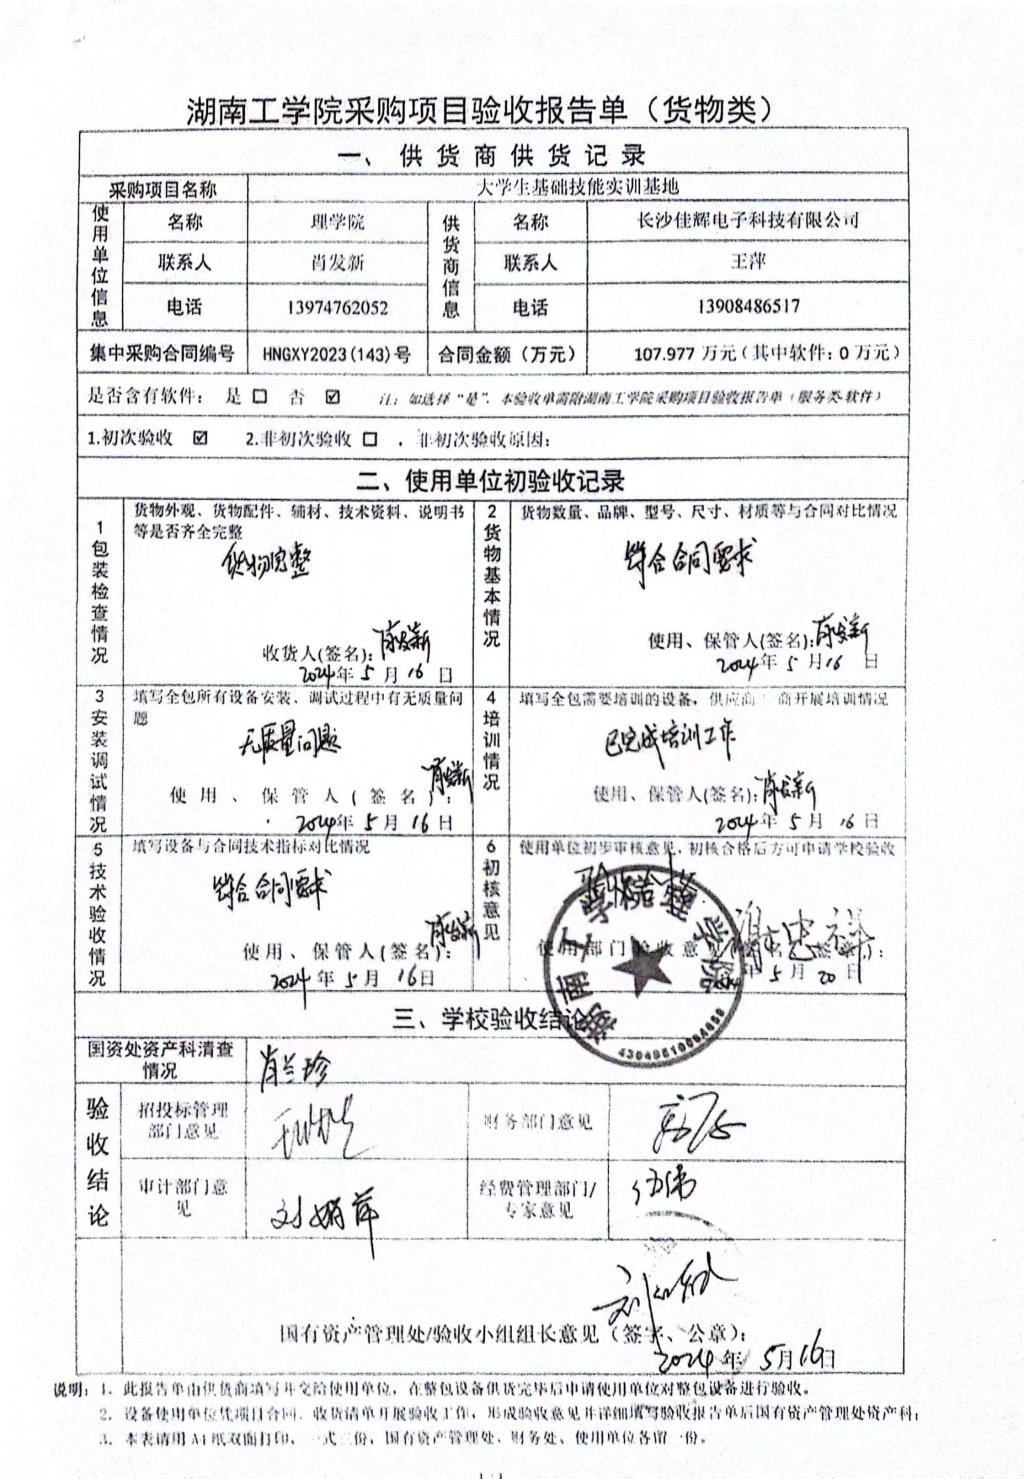 湖南工学院采购项目验收报告单（货物类）
一、供货商供货记录
采购项目名称 大学生基础技能实训基地
使用单位信息 名称 理学院 供货商信息 名称 长沙佳辉电子科技有限公司
联系人 肖发新 联系人 王萍
电话 13974762052 电话 13908486517
集中采购合同编号 HNGXY2023(143)号 合同金额（万元） 107.977 万元（其中软件：0 万元）
是否含有软件： 是 □ 否 ☑ 注：如选择“是”，本验收单需附湖南工学院采购项目验收报告单（服务类-软件）
1.初次验收 ☑ 2.非初次验收 □ ，非初次验收原因：
二、使用单位初验收记录
1包装检查情况
货物外观、货物配件、辅材、技术资料、说明书
等是否齐全完整
货物完整
收货人(签名): 肖发新
2024年 5 月 16 日
2货物基本情况
货物数量、品牌、型号、尺寸、材质等与合同对比情况
符合合同要求
使用、保管人(签名): 肖发新
2024年 5 月 16 日
3安装调试情况
填写全包所有设备安装、调试过程中有无质量问
题
无质量问题
使用、保管人(签名): 肖发新
2024年 5 月 16 日
4培训情况
填写全包需要培训的设备，供应商 商开展培训情况
已完成培训工作
使用、保管人(签名): 肖发新
2024年 5 月 16 日
5技术验收情况
填写设备与合同技术指标对比情况
符合合同要求
使用、保管人(签名): 肖发新
2024年 5 月 16日
6初核意见
使用单位初步审核意见，初核合格后方可申请学校验收
验收合格
使用部门验收意见（签名、签章）:
年 5 月 20 日
湖南工学院理学院
三、学校验收结论
国资处资产科清查
情况
肖兰珍
验收结论
招投标管理
部门意见
财务部门意见
审计部门意
见
刘娟萍
经费管理部门/
专家意见
伍伟
国有资产管理处/验收小组组长意见（签字、公章）：
2024 年 5月16日
说明：1. 此报告单由供货商填写并交给使用单位，在整包设备供货完毕后申请使用单位对整包设备进行验收。
2. 设备使用单位凭项目合同、收货清单开展验收工作，形成验收意见并详细填写验收报告单后国有资产管理处资产科；
3. 本表请用 A4 纸双面打印，一式三份，国有资产管理处、财务处、使用单位各留一份。